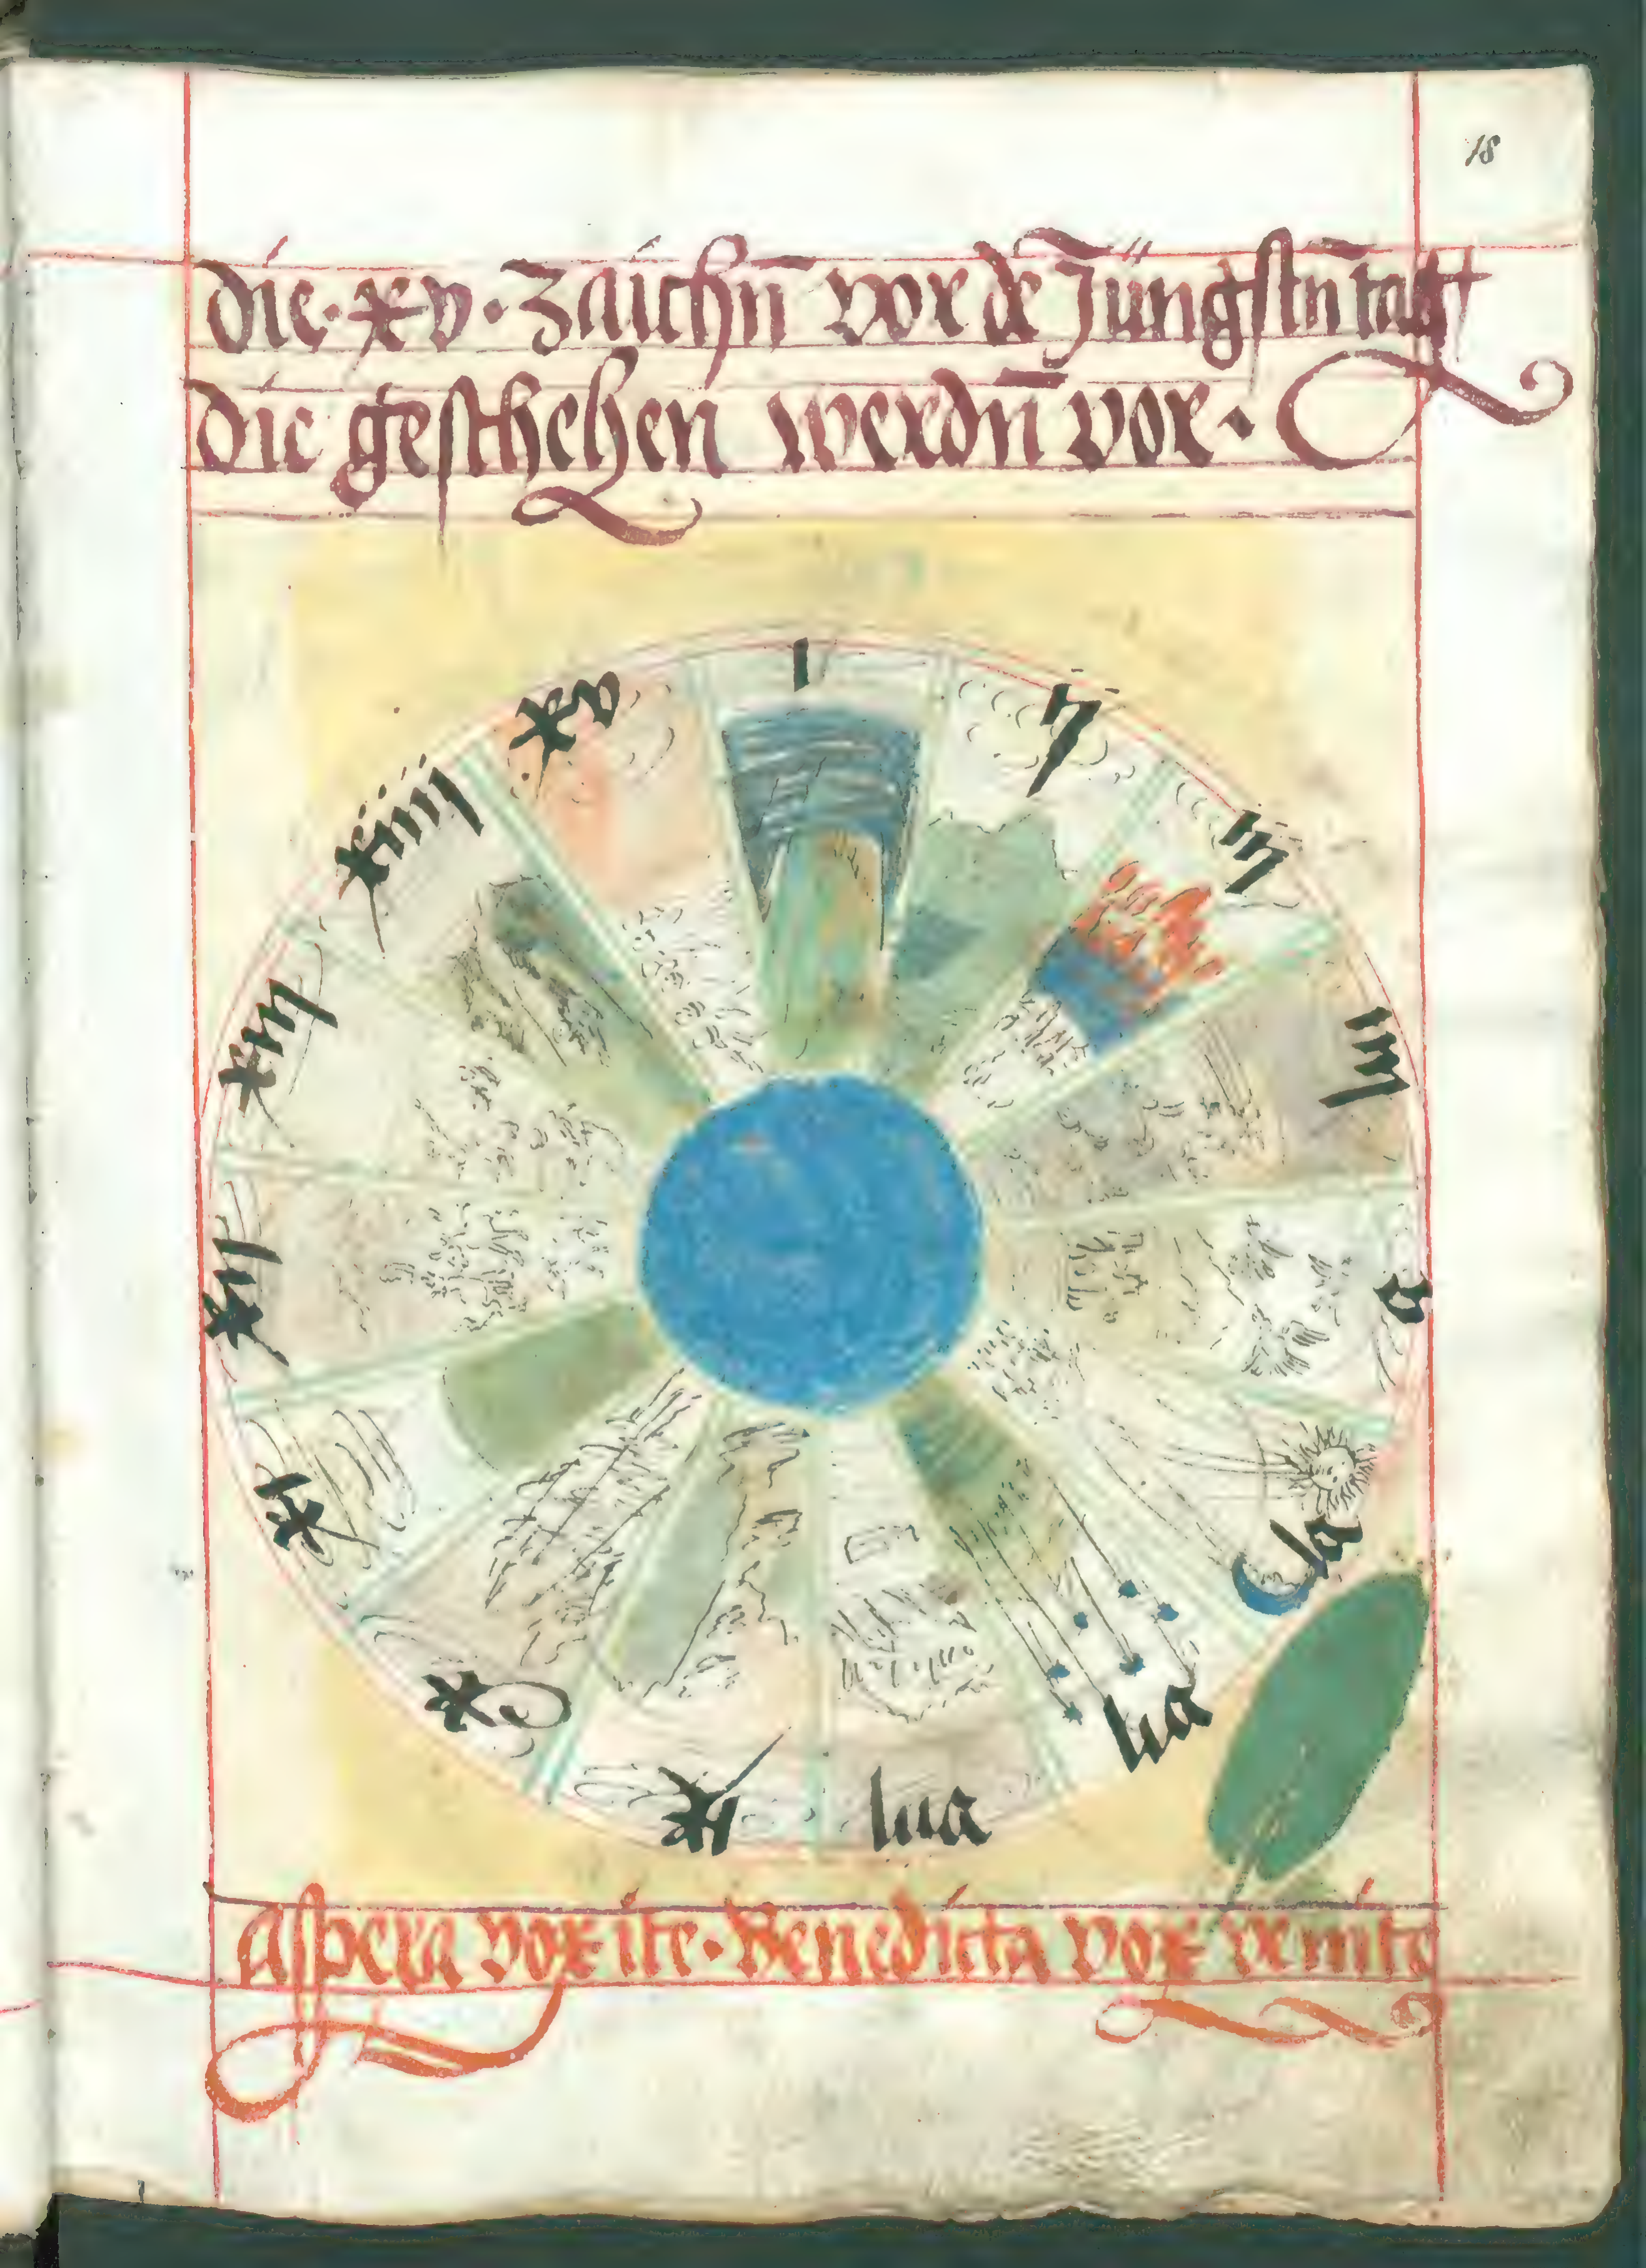 18
die · xv · zaichn̄ vor dē Jüngstn̄ tag
die geschehen werdn̄ vor ·
I
Z
III
IIII
v
vI
vII
vIII
Ix
x
xI
xII
xIII
xIIII
xv
Aspera vox ite · Benedicta vox venite